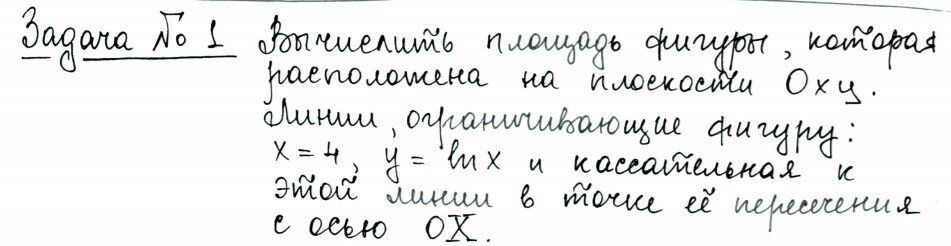 Задача № 1 Вычислить площадь фигуры, которая
расположена на плоскости Oxy.
Линии, ограничивающие фигуру:
x = 4, y = ln x и кассательная к
этой линии в точке её пересечения
с осью OX.